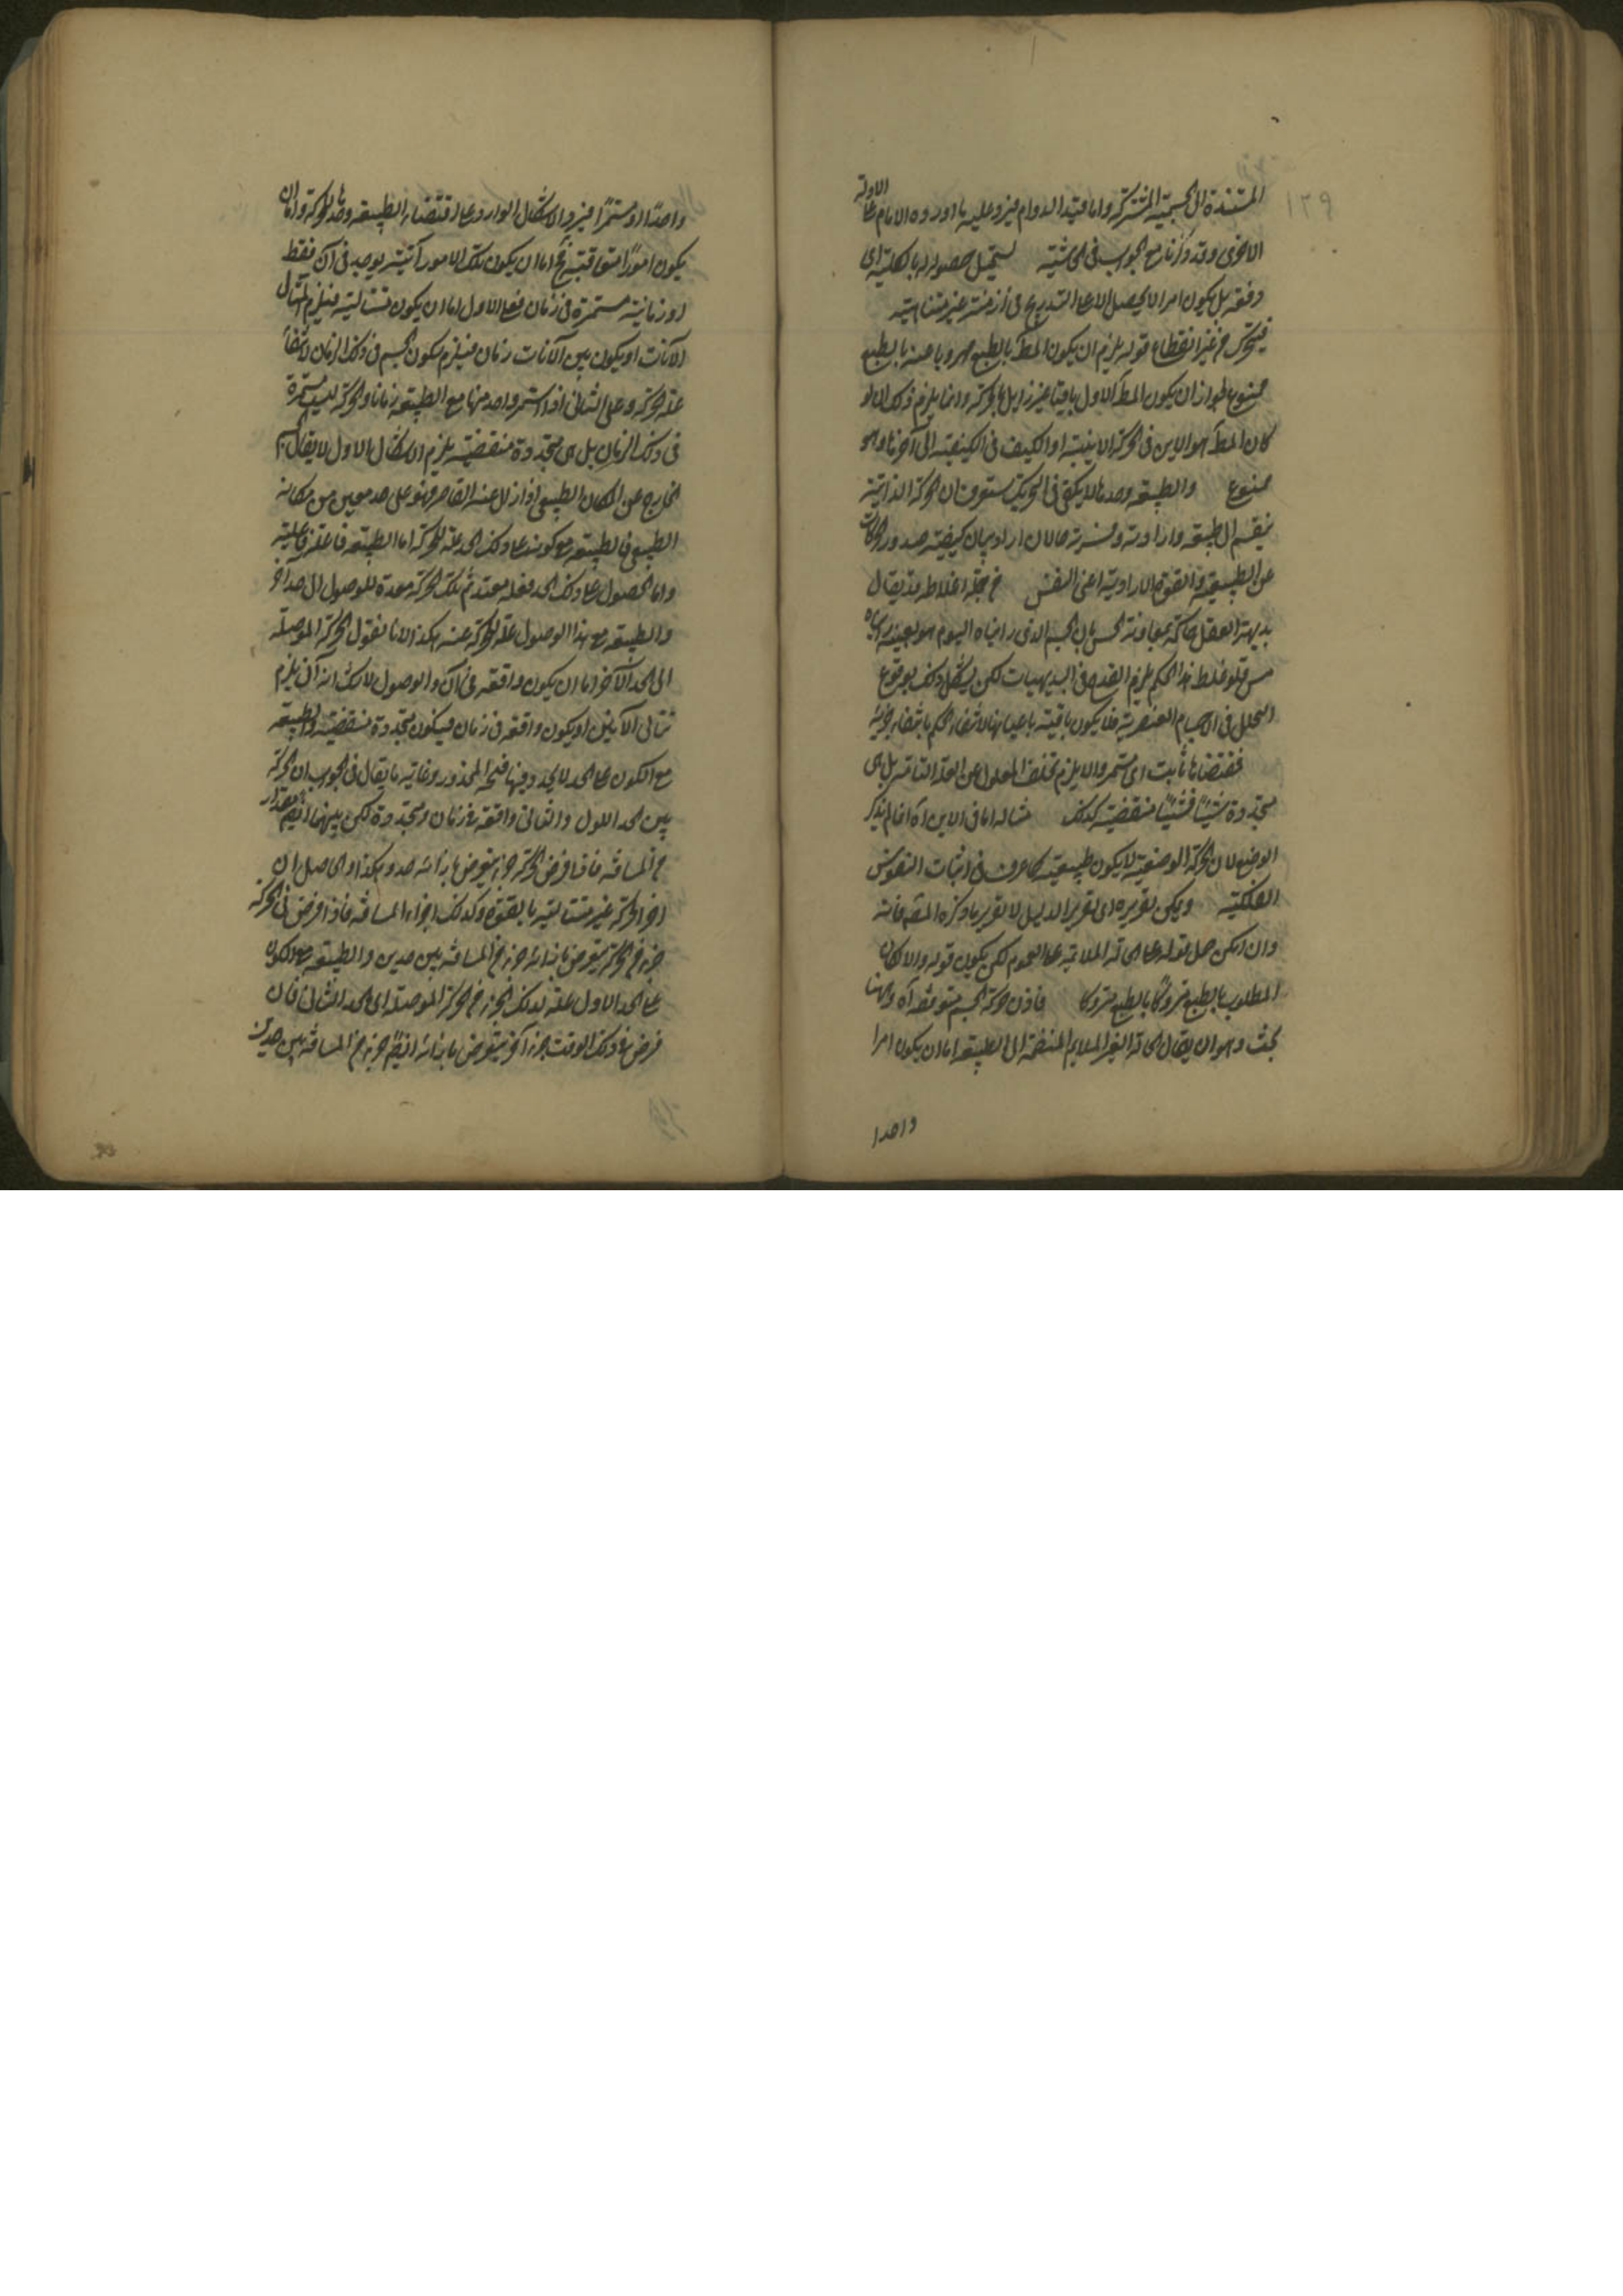 ١٢٩
المستندة الى الجسمية المشتركة واما قيد الدوام فيرد عليه ما اورده الامام على الاولة
الاخرى وقد ذكرنا مع الجواب فى الحاشية يستحيل حصوله له بالكلية اى
دفعة بل يكون امرا لا يحصل الا على التدريج فى ازمنة غير متناهية
فيتحرك من غير انقطاع قوله يلزم ان يكون المط بالطبع مهروبا عنه بالطبع
ممنوع لجواز ان يكون المط الاول باقيا غير زايل بالحركة وانما يلزم ذلك ان لو
كان المط هو الاين فى الحركة الاينية او الكيف فى الكيفية الى آخرها وهو
ممنوع والطبيعة وحدها لا يكفى فى التحريك ستعرف ان الحركة الذاتية
ينقسم الى طبيعية وارادية وقسرية حالان اراد بيان كيفية صدور الحركات
عن الطبيعة والقوة الارادية اعنى النفس من جملة اغلاطه قد يقال
بديهة العقل حاكمة بمعاونة الحس بان الجسم الذى رايناه اليوم هو بعينه رايناه
من قبل فلو غلط هذا الحكم يلزم القدح فى البديهيات لكن يشكل ذلك بوقوع
التحلل فى الاجسام العنصرية فلا يكون باقية باعيانها لانتفاء الحكم بانتفاء جزئه
فمقتضاها ثابت اى مستمر والا يلزم تخلف المعلول عن العلة التامة بل هى
متجددة شيئا فشيئا منقضية كذلك مثاله اما فى الاين آه انما لم يذكر
الوضع لان الحركة الوضعية لا يكون طبيعية كما عرف فى اثبات النفوس
الفلكية ويمكن تقريره اى تقرير الدليل لا تقرير ما ذكره المقم فانه
وان امكن حمل قوله على الحالة الملائمة على العموم لكن يكون قوله والا لكان
المطلوب بالطبع متروكا بالطبع متروكا فاذن حركة الجسم متوقفة آه وههنا
بحث وهو ان يقال الحالة الغير الملايم المنضمة الى الطبيعة اما ان يكون امرا
واحدا
واحدا او مستمرا فيرد الاشكال الوارد على اقتضاء الطبيعة وحدها للحركة واما ان
يكون امورا متعاقبة فح اما ان يكون تلك الامور آنية يوجد فى آن فقط
او زمانية مستمرة فى زمان فعلى الاول اما ان يكون متتالية فيلزم تتالى
الآنات او يكون بين الآنات زمان فيلزم سكون الجسم فى ذلك الزمان لانتفاء
علة الحركة وعلى الثانى اذا استمر واحد منها مع الطبيعة زمانا والحركة ليست مستمرة
فى ذلك الزمان بل هى متجددة منقضية يلزم الاشكال الاول لا يقال الجسم
الخارج عن المكان الطبيعى اذا زال عنه القاسر فهو على حد معين من مكانه
الطبيعى فالطبيعة مع كونه على ذلك الحد علة للحركة اما الطبيعة فاعلة فاعلية
واما الحصول على ذلك الحد فعلة معدة ثم تلك الحركة معدة للوصول الى حد آخر
والطبيعة مع هذا الوصول علة للحركة عنه هكذا لانا نقول الحركة الموصلة
الى الحد الآخر اما ان يكون واقعة فى آن والوصول لا شك انه آنى يلزم
تتالى الآنين او يكون واقعة فى زمان فيكون متجددة منقضية والطبيعة
مع الكون على الحد لا تجدد فيها فيجئ المحذور وغاية ما يقال فى الجواب ان الحركة
بين الحد الاول والثانى واقعة فى زمان ومتجددة لكن بينهما ايضم مقدار
من المسافة فاذا فرض للحركة جزء يفرض بازائه حد وهكذا والحاصل ان
اجزاء الحركة غير متناهية بالقوة وكذلك اجزاء المسافة فاذا فرض فى الحركة
جزء من الحركة يفرض بازائه جزء من المسافة بين حدين والطبيعة مع الكون
على الحد الاول علة لذلك الجزء من الحركة الموصلة الى الحد الثانى فان
فرض فى ذلك الوقت جزء آخر يفرض بازائه ايضم جزء من المسافة بين حدين